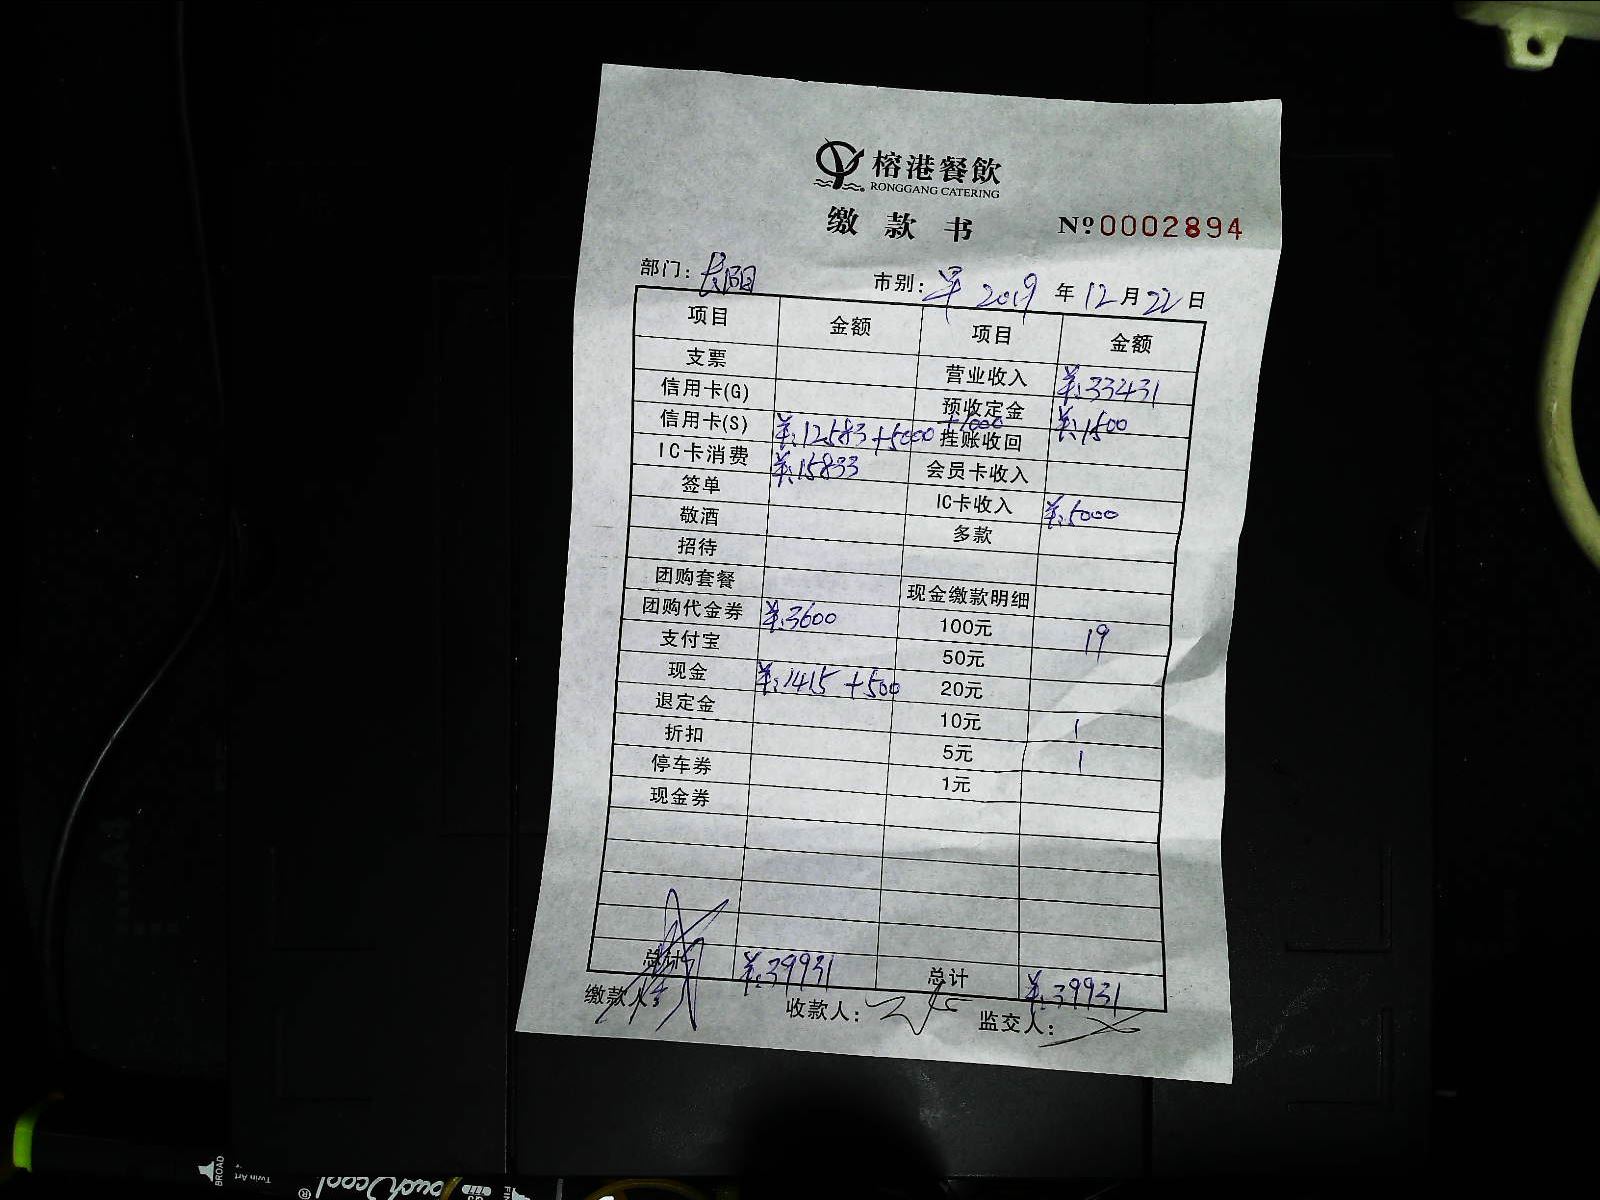 榕港餐飲
RONGGANG CATERING
缴款书 №0002894
部门：长阳 市别：早 2019年12月22日
项目 金额 项目 金额
支票 营业收入 ¥:33431
信用卡(G) 预收定金 ¥:1500
信用卡(S) ¥:12583+5000+1000 挂账收回
IC卡消费 ¥:15833 会员卡收入
签单 IC卡收入 ¥:5000
敬酒 多款
招待
团购套餐 现金缴款明细
团购代金券 ¥:3600 100元 19
支付宝 50元
现金 ¥:1415 +500 20元
退定金 10元 1
折扣 5元 1
停车券 1元
现金券
总计 ¥:39931 总计 ¥:39931
缴款人 收款人： 监交人：
BROAD
Twin Art